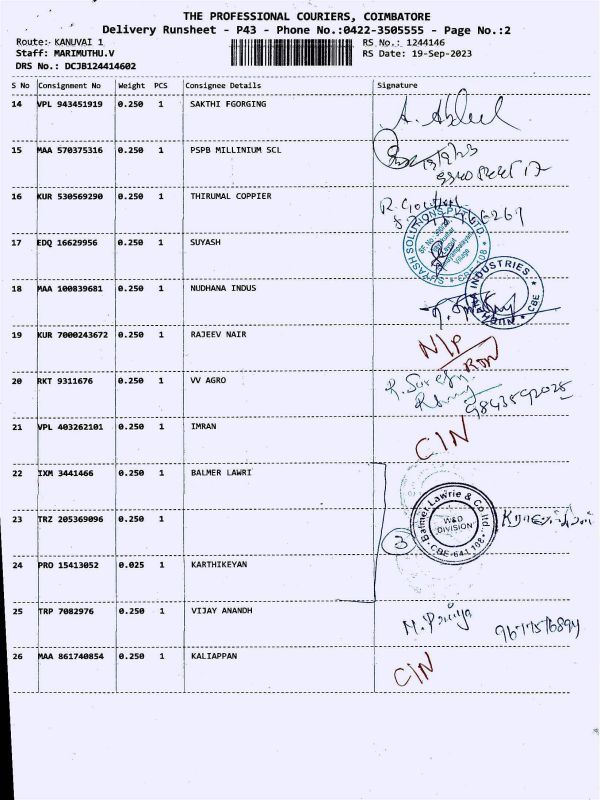 THE PROFESSIONAL COURIERS, COIMBATORE
Delivery Runsheet - P43 - Phone No.:0422-3505555 - Page No.:2
Route:- KANUVAI 1 RS No.: 1244146
Staff: MARIMUTHU.V RS Date: 19-Sep-2023
DRS No.: DCJB124414602
S No Consignment No Weight PCS Consignee Details Signature
14 VPL 943451919 0.250 1 SAKTHI FGORGING
15 MAA 570375316 0.250 1 PSPB MILLINIUM SCL
16 KUR 530569290 0.250 1 THIRUMAL COPPIER
17 EDQ 16629956 0.250 1 SUYASH
18 MAA 100839681 0.250 1 NUDHANA INDUS
INDUSTRIES CBE
19 KUR 7000243672 0.250 1 RAJEEV NAIR N/P
20 RKT 9311676 0.250 1 VV AGRO
21 VPL 403262101 0.250 1 IMRAN C/N
22 IXM 3441466 0.250 1 BALMER LAWRI
23 TRZ 205369096 0.250 1 3
Balmer Lawrie & Co ltd.
W&D
DIVISION
CBE-641 108
24 PRO 15413052 0.025 1 KARTHIKEYAN
25 TRP 7082976 0.250 1 VIJAY ANANDH M. Priya
26 MAA 861740854 0.250 1 KALIAPPAN C/N